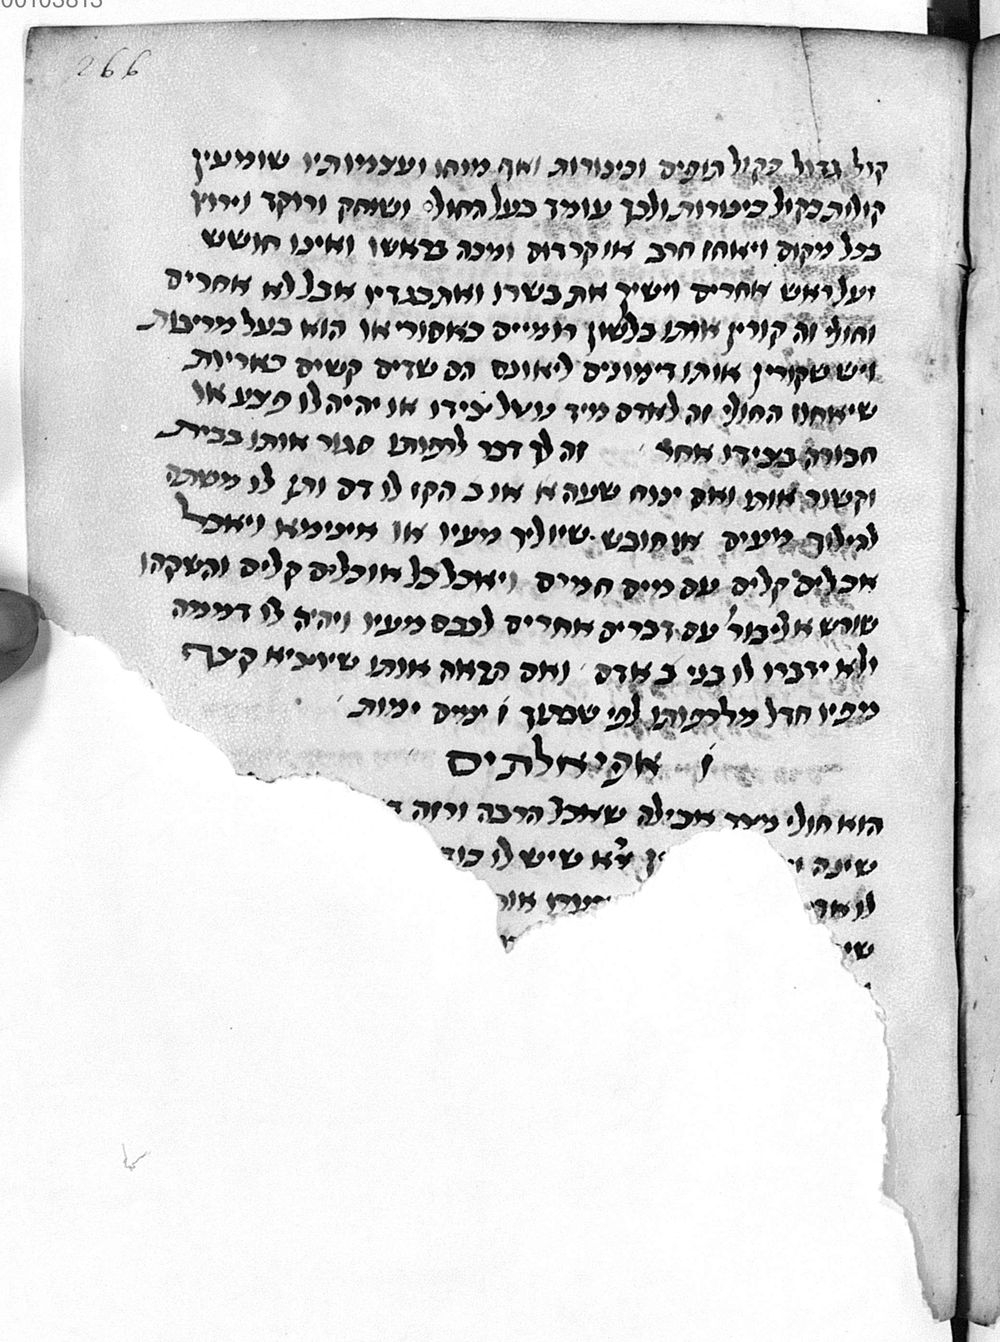 00103813
266
קול גדול כקול תופים וכינורות ואף מוחו ועצמותיו שומעין
קולות כקול כינורות ולכך עומד בעל החולי ושוחק ורוקד וירוץ
בכל מקום ויאחז חרב או קרדום ומכה בראשו ואינו חושש
ועל ראש אחרים וישיך את בשרו ואת בגדיו אבל לא אחרים
וחולי זה קורין אותו בלשון רומיים הוא בעל מריבות
ויש שקורין אותו דימונים ליאונס הם שדים קשים כאריות
שיאחזו החולי זה לאדם מיד או יהיה לו פצע או
חבורה בצידו אחר זה לך דבר לרפותו סגור אותו בבית
וקשור אותו ואם ינוח שעה א או ב הקז לו דם ותן לו משתה
להילוך מעים או חובש שיוליך מעיו או ויאכל
אכלים קלים עם מיים חמים ויאכל כל אוכלים קלים והשקהו
שורש עם דברים אחרים לכבס מעיו ויהיה לו דממה
ולא ידברו לו בני אדם ואם תראה אותו שיוציא קצף
מפיו חדל מלרפותו לפי שבתוך ז ימים ימות
ז אפיאלתים
הוא חולי מצד אכילה שאכל הרבה ורוה
שינה שיש לו
לו